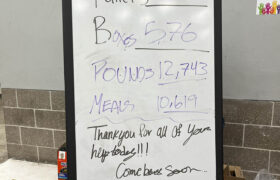 Boxes 576
Pounds 12,743
Meals 10,619
Thank you for all of your
help today!!!
Come back soon...